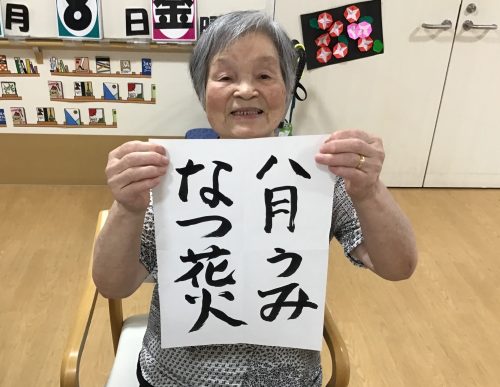 月8日金
八月うみ
なつ花火